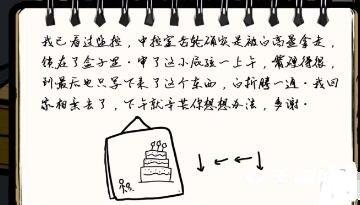 我已看过监控，中控室齿轮确实是被白高盖拿走，
锁在了盒子里。审了这小屁孩一上午，嘴硬得很，
到最后也只写下来了这个东西，白折腾一通。我回
家相亲去了，下午就辛苦你想想办法，多谢。
↓ ← ← ↓